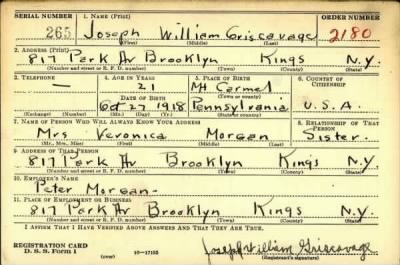 SERIAL NUMBER 1. NAME (Print) ORDER NUMBER
265 Joseph William Griscavage 2180
(First) (Middle) (Last)
2. ADDRESS (Print)
817 Park Av Brooklyn Kings N.Y.
(Number and street or R. F. D. number) (Town) (County) (State)
3. TELEPHONE 4. AGE IN YEARS 5. PLACE OF BIRTH 6. COUNTRY OF CITIZENSHIP
— 21 Mt Carmel
DATE OF BIRTH (Town or county)
Oct 27 1918 Pennsylvania U.S.A.
(Exchange) (Number) (Mo.) (Day) (Yr.) (State or country)
7. NAME OF PERSON WHO WILL ALWAYS KNOW YOUR ADDRESS 8. RELATIONSHIP OF THAT PERSON
Mrs Veronica Morgan Sister.
(Mr., Mrs., Miss) (First) (Middle) (Last)
9. ADDRESS OF THAT PERSON
817 Park Av Brooklyn Kings N.Y.
(Number and street or R. F. D. number) (Town) (County) (State)
10. EMPLOYER'S NAME
Peter Morgan-
11. PLACE OF EMPLOYMENT OR BUSINESS
817 Park Av Brooklyn Kings N.Y.
(Number and street or R. F. D. number) (Town) (County) (State)
I AFFIRM THAT I HAVE VERIFIED ABOVE ANSWERS AND THAT THEY ARE TRUE.
REGISTRATION CARD
D. S. S. Form 1 16—17105 Joseph William Griscavage
(Registrant's signature)